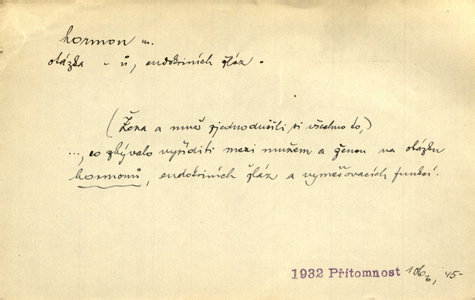 hormon m.
otázka - ů, endokriních žláz.
(Žena a muž zjednodušili si všechno to,)
..., co zbývalo vyříditi mezi mužem a ženou na otázku
hormonů, endokriních žláz a vyměšovacích funkcí.
1932 Přítomnost 106/6, 45-